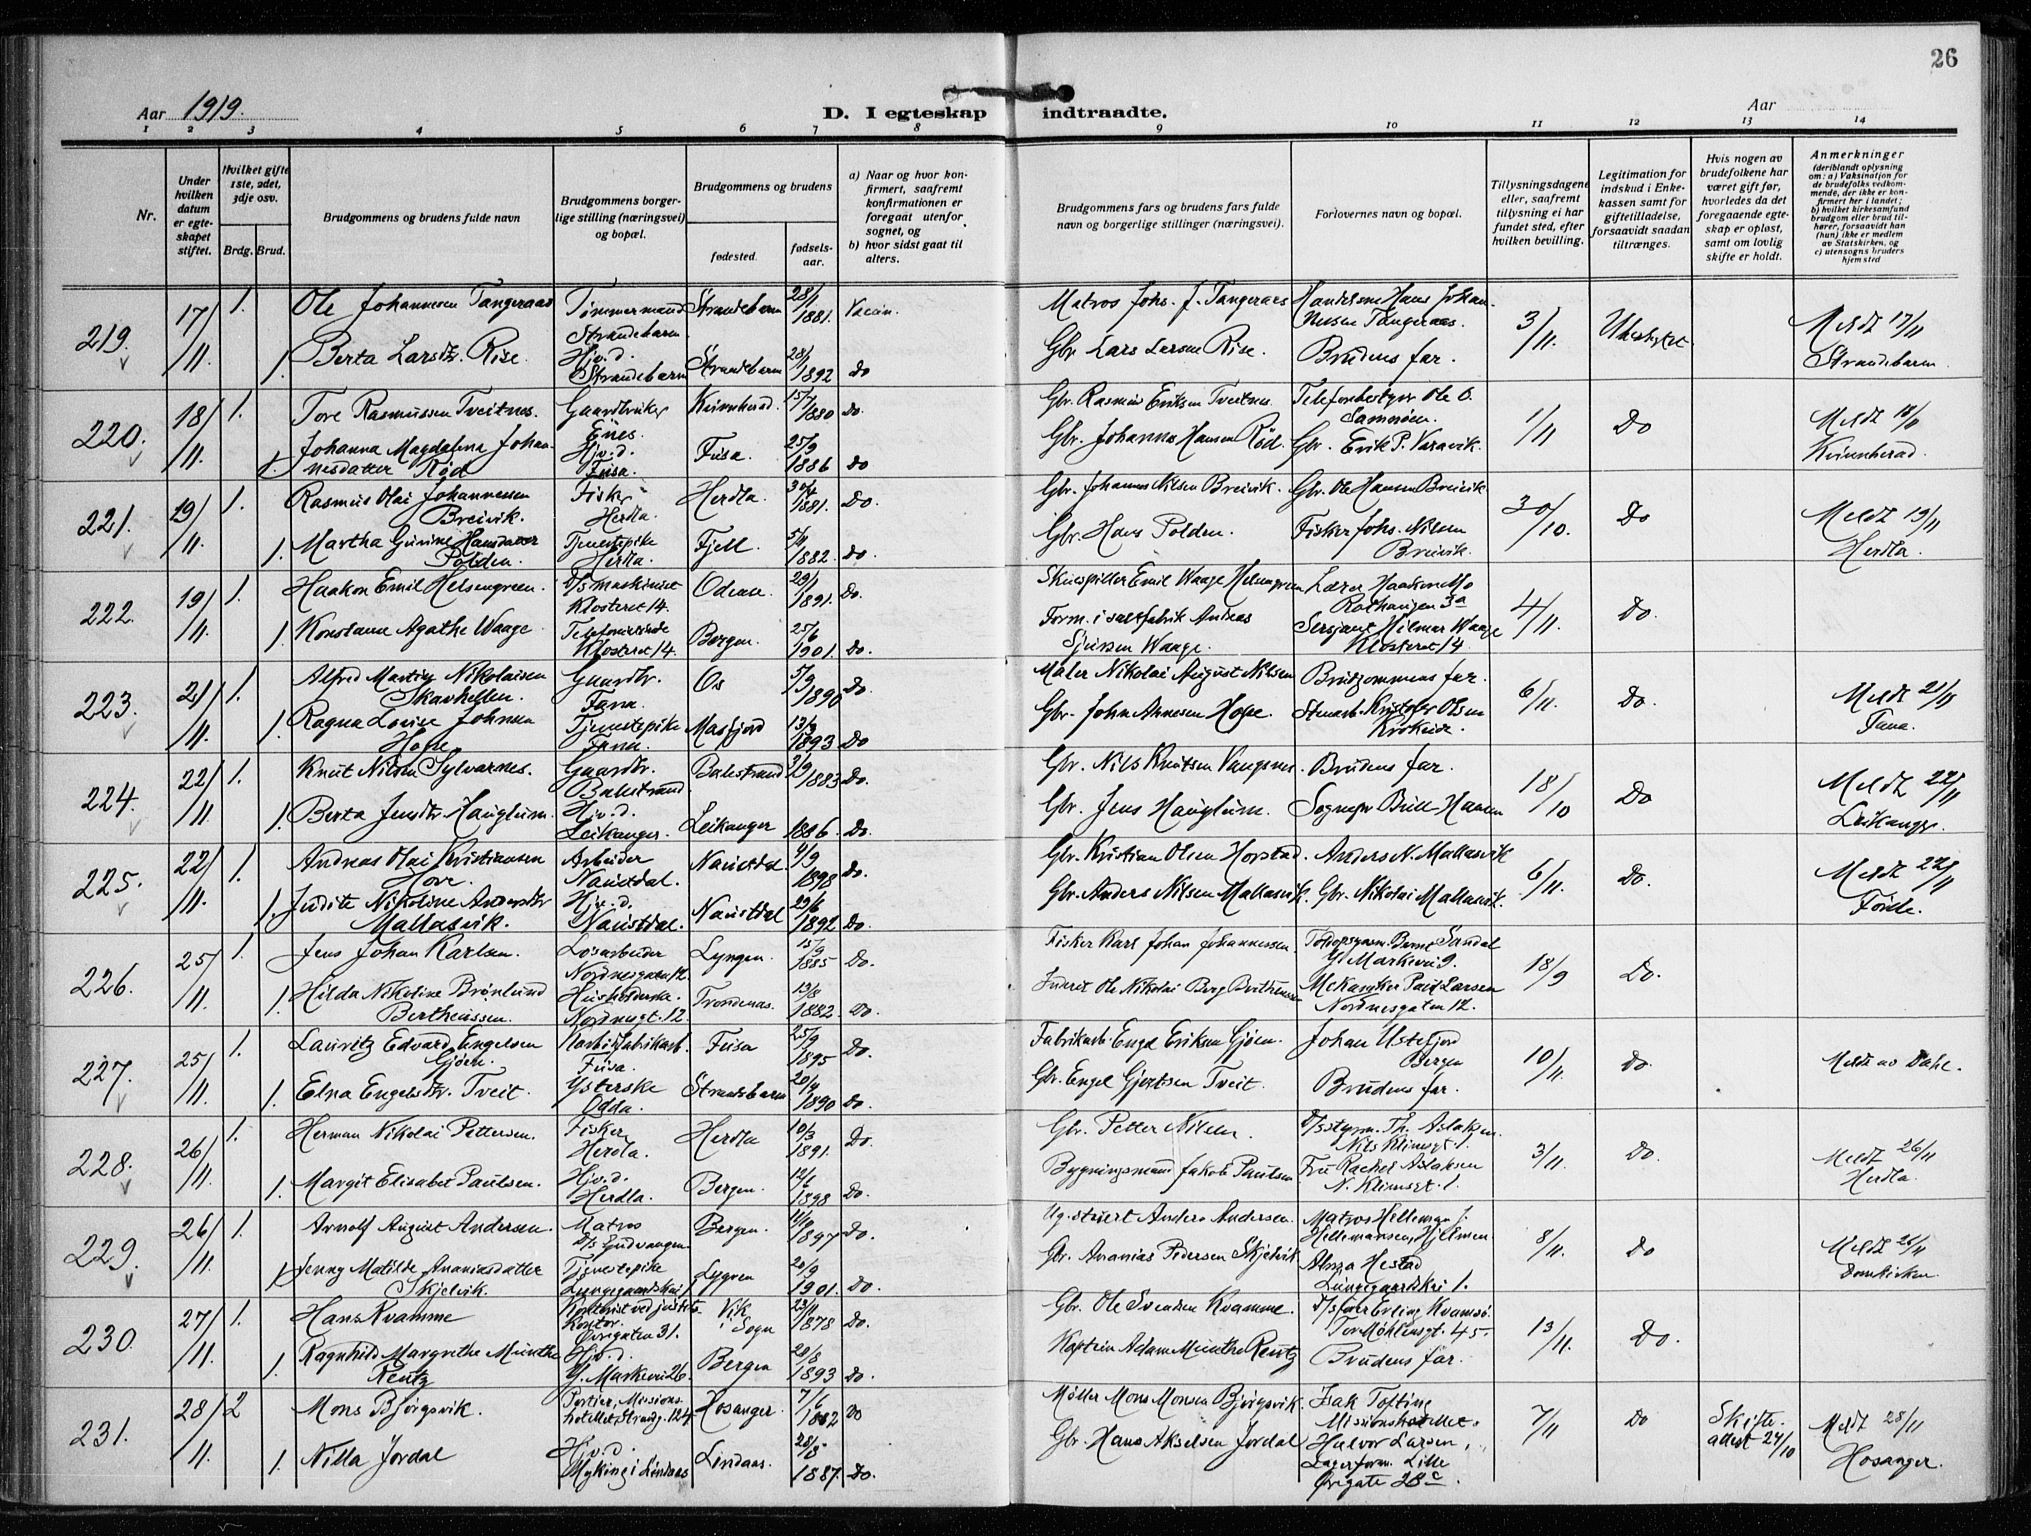 26
Aar 1919.
D. I egteskap indtraadte.
Aar
1 2 3 4 5 6 7 8 9 10 11 12 13 14
Nr.
Under hvilken datum er egteskapet stiftet.
Hvilket gifte 1ste, 2det, 3dje osv.
Brdg. Brud.
Brudgommens og brudens fulde navn
Brudgommens borgerlige stilling (næringsvei) og bopæl.
Brudgommens og brudens
fødested.
fødselsaar.
a) Naar og hvor konfirmert, saafremt konfirmationen er foregaat utenfor sognet, og
b) hvor sidst gaat til alters.
Brudgommens fars og brudens fars fulde navn og borgerlige stillinger (næringsvei).
Forlovernes navn og bopæl.
Tillysningsdagene eller, saafremt tillysning ei har fundet sted, efter hvilken bevilling.
Legitimation for indskud i Enkekassen samt for giftetilladelse, forsaavidt saadan tiltrænges.
Hvis nogen av brudefolkene har været gift før, hvorledes da det foregaaende egteskap er opløst, samt om lovlig skifte er holdt.
Anmerkninger
(deriblandt oplysning om: a) Vaksination for de brudefolks vedkommende, der ikke er konfirmert her i landet;
b) hvilket kirkesamfund brudgom eller brud tilhører, forsaavidt han (hun) ikke er medlem av Statskirken, og
c) utensogns bruders hjemsted
219. 17/11. 1. Ole Johannesen Tangeraas Tømmermand Strandebarm Strandebarm 28/11 1881. Matros Johs. J. Tangeraas 3/11. Meldt 17/11
1. Berta Larsdtr. Rise. Hjv.d. Strandebarm Strandebarm 1892 Do Gbr. Lars Larsen Rise. Brudens far. Strandebarm
220. 18/11. 1. Tore Rasmussen Tveitnes. Gaardbruker Enes. Kvinnherad. 1880 Do. Gbr. Rasmus Eriksen Tveitnes Telefonbestyrer Ole O. 1/11 Do Meldt 18/11
1. Johanna Magdalena Johannesdatter Rød Hjv.d. Fusa. Fusa. 25/9 1886 Do Gbr. Johannes Hansen Rød. Gbr. Erik P. Varavik. Kvinnherad.
221. 19/11. 1. Rasmus Olai Johannessen Breivik. Fisker Herdla. Herdla. 1881. Do. Gbr. Johannes Nilsen Breivik. Gbr. Ole Hansen Breivik 30/10. Do Meldt 19/11
1. Martha Gurine Hansdatter Polden. Tjenestepike Herdla. Fjell. 5/11 1882 Do. Gbr. Hans Polden. Fisker Johs. Nilsen Breivik. Herdla.
222. 19/11. 1. Haakon Emil Helsengreen. D/s maskinist Klosteret 14. Odense. 29/1 1891. Do. Skuespiller Emil Waage Lærer Haakon Mo Rothaugen 3a 4/11. Do.
1 Konstanse Agathe Waage Klosteret 14. Bergen. 25/6 1901. Do. Form. i saltfabrik Andreas Sjursen Waage. Sersjant Hilmar Waage Klosteret 14.
223. 21/11. 1. Alfred Martin Nikolaisen Skarhellen. Gaardbr. Fana. Os 5/9 1890 Do. Maler Nikolai August Nilsen Brudgommens far. 6/11. Do. Meldt 21/11
1. Ragna Lovise Johnsen Hope. Tjenestepike Fana. Masfjord 13/9 1893 Do Gbr. John Annesen Hope. Kristofer Olsen Fana.
224. 22/11. 1. Knut Nilsen Sylvarnes. Gaardbr. Balestrand. Balestrand 1883 Do. Gbr. Nils Knutsen Vangsnes. Brudens far. 18/10 Do Meldt 22/11
1. Berta Jensdtr Hauglum. Hjv.d. Leikanger. Leikanger 1886. Do. Gbr. Jens Hauglum. Sognepr Bull-Hansen Leikanger.
225. 22/11. 1. Andreas Olai Kristiansen Arbeider Naustdal. Naustdal. 4/9 1898 Do. Gbr. Kristian Olsen Horstad. Anders N. Mallasvik 6/11. Do. Meldt 22/11
1. Judite Nikoline Andersdtr Mallasvik. Hjv.d. Naustdal. Naustdal 29/6 1892 Do. Gbr. Anders Nilsen Mallasvik. Gbr. Nikolai Mallasvik. Førde.
226. 25/11. 1. Jens Johan Karlsen. Løsarbeider Nordnesgaten 12. Lyngen. 15/9 1885 Do. Fisker Karl Johan Johannessen. Bernt Sandal 18/9 Do.
1 Hilda Nikoline Brønlund Bertheussen. Husholderske. Nordnesgt. 12. Trondenes. 13/8 1882 Do. Inderst Ole Nikolai Berg Bertheussen Mekaniker Paul Larsen Nordnesgaten 12.
227. 25/11. 1. Lauritz Edvard Engelsen Gjøen. Fusa. Fusa 25/9 1895 Do. Fabrikarb. Engel Eriksen Gjøen. Johan Ustefjord Bergen 10/11. Do. Meldt av Dahl.
1. Elna Engelsdtr. Tveit. Ysterske Odda. Strandebarm 20/4 1890 Do. Gbr. Engel Gjertsen Tveit. Brudens far.
228. 26/11. 1. Herman Nikolai Pettersen. Fisker Herdla. Herdla 10/3 1891. Do. Gbr. Petter Nilsen. D/sstyrm. Th. Aslaksen Nils Klimsgt 1. 3/11. Do. Meldt 26/11
1. Margit Elisabet Paulsen. Hjv.d. Herdla. Bergen. 12/6 1898 Do. Bygningsmand Jakob Paulsen Fru Rachel Aslaksen N. Klimsgt. 1. Herdla.
229. 26/11. 1. Arnolf August Andersen. Matros D/s Gudvangen Bergen. 1897 Do. Anders Andersen. Matros Hellemann J. Hellemansen, Hjelmen 8/11. Do Meldt 26/11
1. Jenny Matilde Ananiasdatter Skjelvik. Tjenestepike Lungegaardskai 1. Lygren 20/9 1901. Do. Gbr. Ananias Pedersen Skjelvik Anna Hestad Lungegaardskai 1. Domkirken.
230. 27/11. 1. Hans Kvamme Kontorist ved justits. kontor. Øvregaten 31. Vik i Sogn 23/11 1878 Do. Gbr. Ole Svendsen Kvamme. Erling Kvamsø. Tor Møhlensgt. 45. 13/11. Do.
1. Ragnhild Margrethe Munthe Rentz Hjv.d. Bergen 20/8 1893 Do. Kaptein Adam Munthe Rentz Brudens far.
231. 28/11. 2 Mons Bjørgsvik. Portier, Missionshotellet, Strandg. 124 Hosanger. 7/6 1882 Do Møller Mons Monsen Bjørgsvik. Isak Tofting Missionshotellet. 7/11 Do Skifteattest 24/10 Meldt 28/11
1. Nilla Jordal Hjv.d. Myking i Lindaas Lindaas. 1887. Do. Gbr. Hans Akselsen Jordal Halvor Larsen, Lagerform. Lille Øvregate 28c. Hosanger.